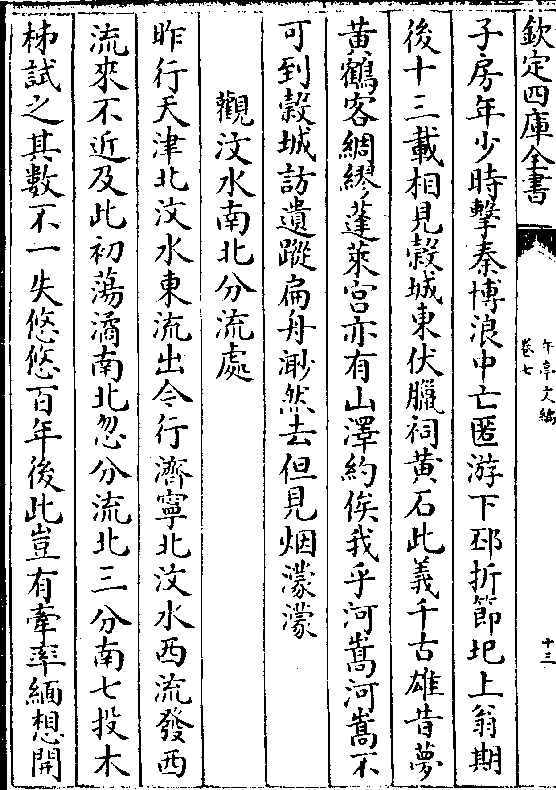 欽定四庫全書
午亭文編
卷七
十三
子房年少時擊秦博浪中亡匿游下邳折節圯上翁期
後十三載相見穀城東伏臘祠黃石此義千古雄昔夢
黃鶴客綢繆蓬萊宮亦有山澤約俟我乎河嵩河嵩不
可到穀城訪遺蹤扁舟渺然去但見烟濛濛
觀汶水南北分流處
昨行天津北汶水東流出今行濟寧北汶水西流發西
流來不近及此初蕩潏南北忽分流北三分南七投木
柹試之其數不一失悠悠百年後此豈有牽率緬想開